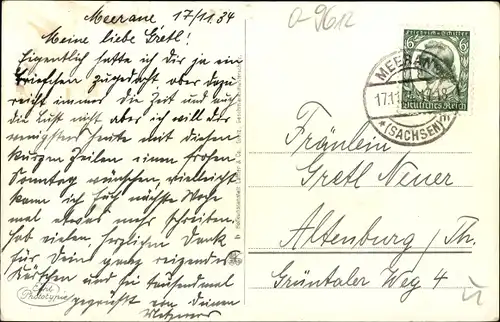 Meerane, 17/11. 34
Meine liebe Gretl!
Eigentlich hatte ich Dir ja ein
Briefchen zugedacht aber dazu
reicht immer die Zeit und auch
die Lust nicht aber ich will dir
wenigstens heute mit diesen
kurzen Zeilen einen frohen
Sonntag wünschen, vielleicht
kann ich Euch nächste Woche
mal etwas mehr schreiben.
Hab vielen, herzlichen Dank
für Dein ganz reizendes
und sei tausendmal
gegrüßt von deinen
0-9612
Friedrich v. Schiller
6
Deutsches Reich
MEERANE
17.11
* (SACHSEN)
Fräulein
Gretl Neuer
Altenburg / Th.
Grüntaler Weg 4
Echt
Photographie